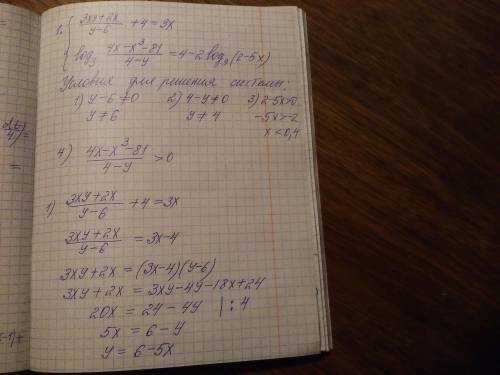 1. { (3xy+2x)/(y-6) + 4 = 3x
{ log₃ (4x-x³-81)/(4-y) = 4-2log₉(2-5x)
Условия для решения системы:
1) y-6≠0 2) 4-y≠0 3) 2-5x>0
y≠6 y≠4 -5x>-2
x<0,4
4) (4x-x³-81)/(4-y) >0
1) (3xy+2x)/(y-6) + 4 = 3x
(3xy+2x)/(y-6) = 3x-4
3xy+2x = (3x-4)(y-6)
3xy+2x = 3xy-4y-18x+24
20x = 24-4y | :4
5x = 6-y
y = 6-5x